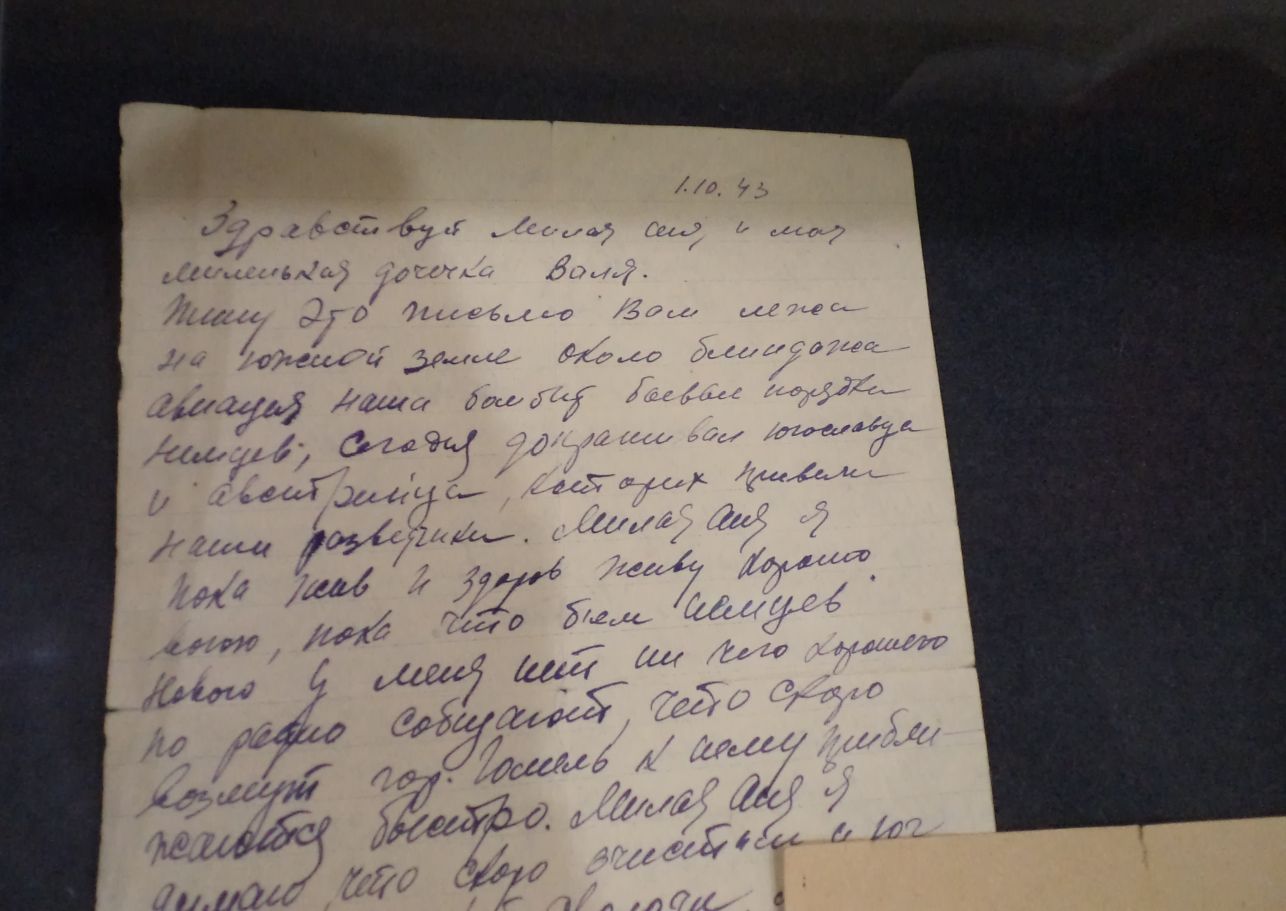 1.10.43
Здравствуй милая Аня и моя
миленькая дочечка Валя.
Пишу это письмо Вам лежа
на южной земле около блиндажа
авиация наша бомбит боевые порядки
немцев, сегодня допрашивал югославца
и австрийца, которых привели
наши разведчики. Милая Аня я
пока жив и здоров живу хорошо
воюю, пока что бьем немцев
нового у меня нет ни чего хорошего
по радио собщают, что скоро
возьмут гор. Гомель к нему прибли-
жаются быстро. Милая Аня я
думаю, что скоро очистим и юг